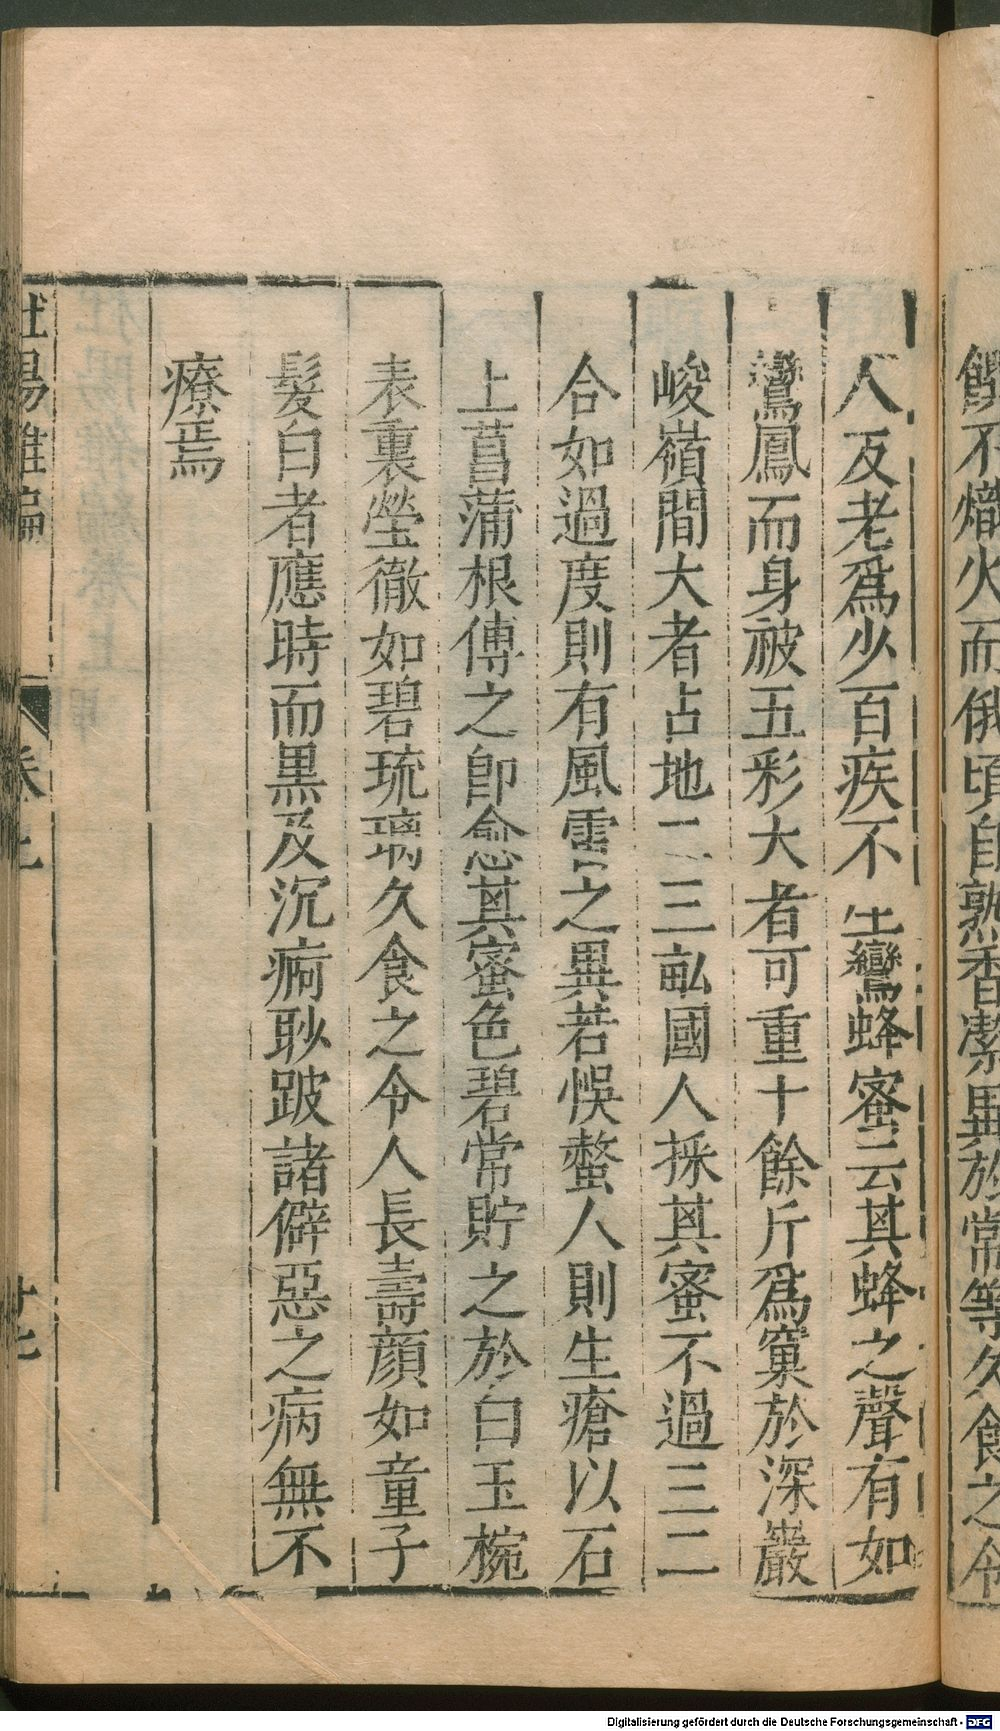 饌不熾火而俄頃自熟香潔異於常等久食之令
人反老為少百疾不生鸞蜂蜜云其蜂之聲有如
鸞鳳而身被五彩大者可重十餘斤為窠於深巖
峻嶺間大者占地二三畝國人採其蜜不過三二
合如過度則有風雷之異若悞螫人則生瘡以石
上菖蒲根傅之卽愈其蜜色碧常貯之於白玉椀
表裏瑩徹如碧琉璃久食之令人長壽顏如童子
髮白者應時而黑及沉痾眇跛諸僻惡之病無不
療焉
杜陽雜編 卷上 廿七
Digitalisierung gefördert durch die Deutsche Forschungsgemeinschaft - DFG